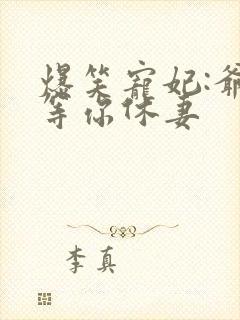 爆笑寵妃:爺
等你休妻
李真